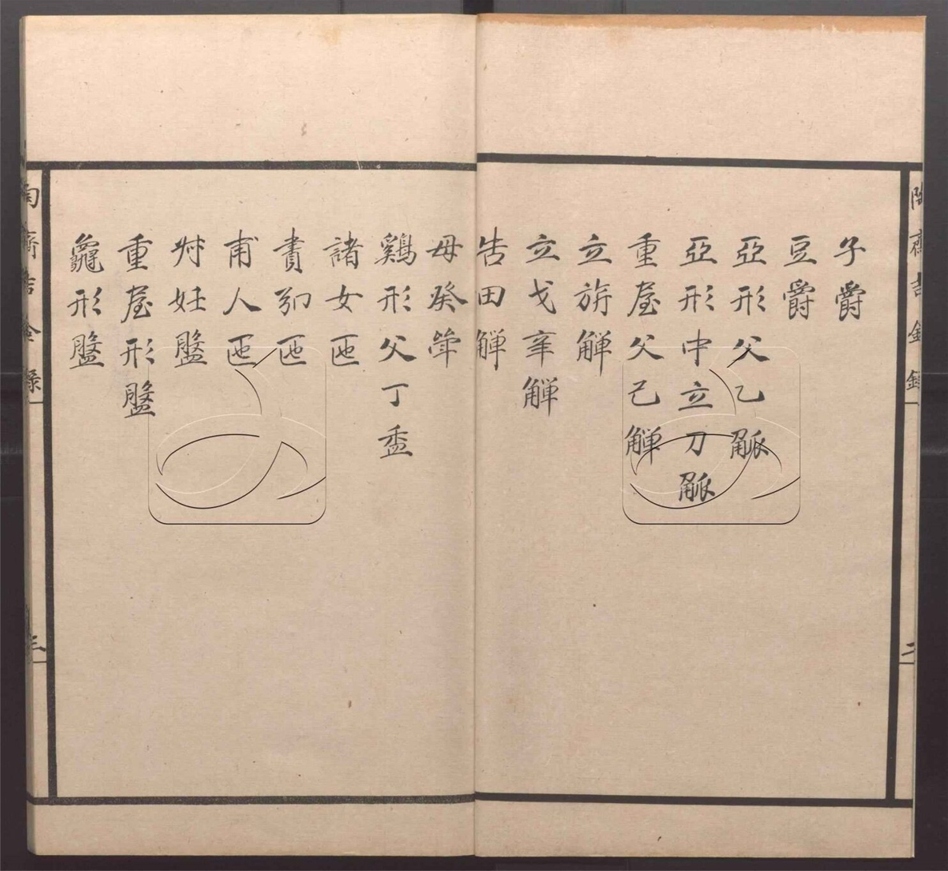 陶齋吉金錄
二
子爵
豆爵
亞形父乙觚
亞形中立刀觚
重屋父己觶
立旂觶
立戈辛觶
告田觶
母癸斝
鷄形父丁盉
諸女匜
匜
甫人匜
妊盤
重屋形盤
龜形盤
陶齋吉金錄
三